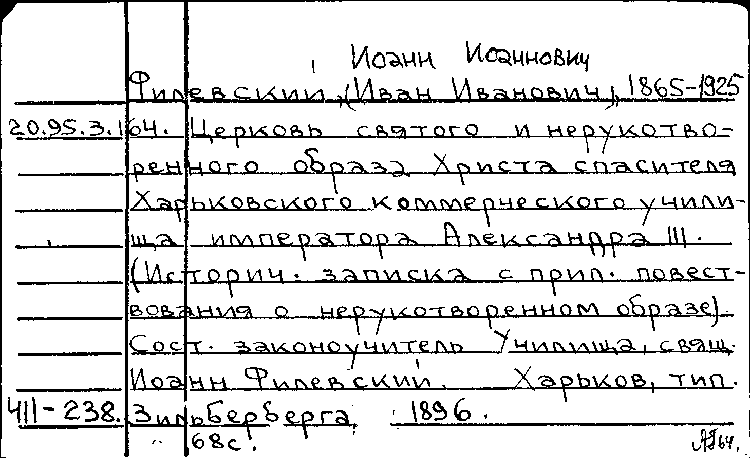 Иоанн Иоаннович
Филевский, (Иван Иванович), 1865-1925
20.95.3.164. Церковь святого и нерукотво-
ренного образа Христа спасителя
Харьковского коммерческого учили-
ща императора Александра III.
(Историч. записка с прил. повест-
вования о нерукотворенном образе)
Сост. законоучитель Училища, свящ.
Иоанн Филевский. Харьков, тип.
411-238. Зильберберга, 1896.
68с.